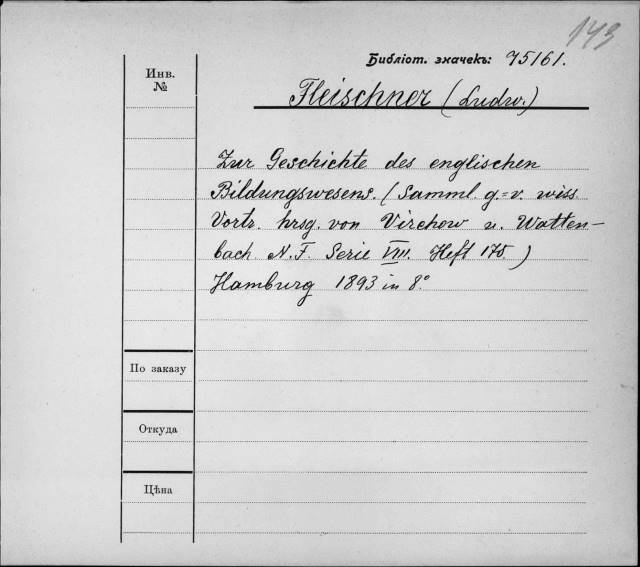 143
Библіот. значекъ: 75161.
Инв.
№
Fleischner (Ludw.)
Zur Geschichte des englischen
Bildungswesens. (Samml. g.=v. wiss.
Vortr. hrsg. von Virchow u. Watten-
bach. N. F. Serie VIII. Heft 175.)
Hamburg 1893 in 8°.
По заказу
Откуда
Цѣна